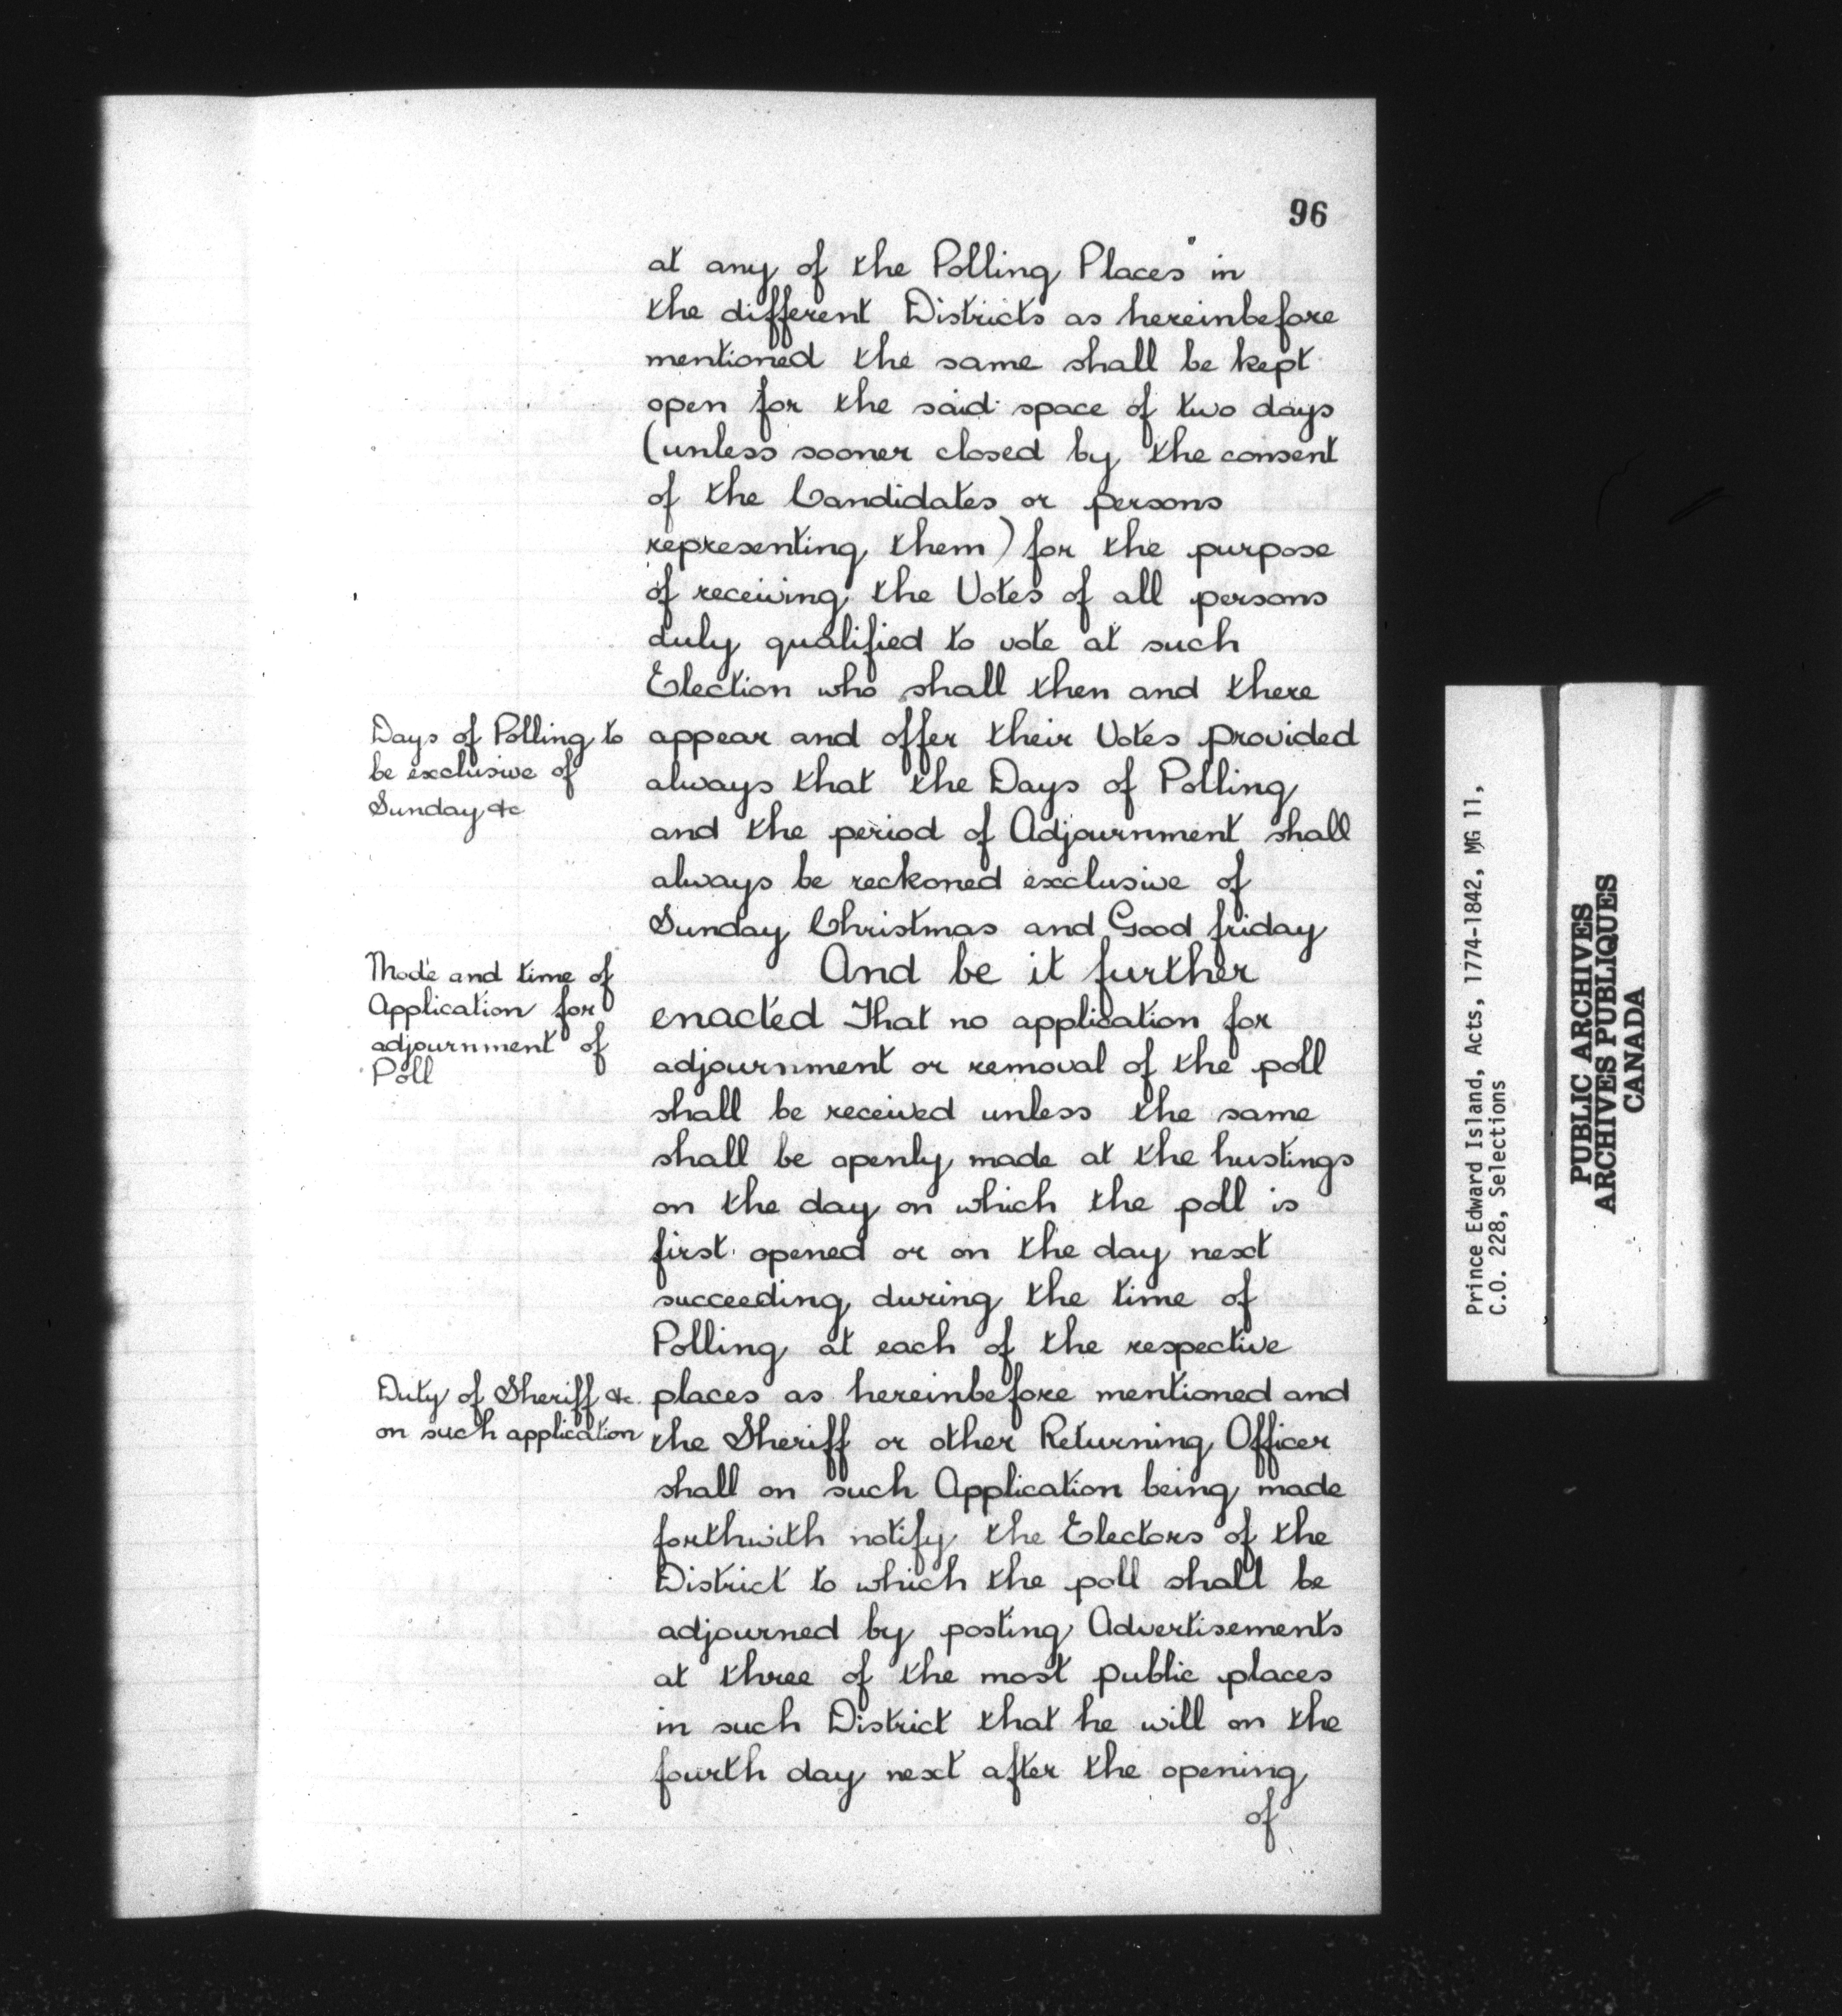 96
at any of the Polling Places in
the different Districts as hereinbefore
mentioned the same shall be kept
open for the said space of two days
(unless sooner closed by the consent
of the Candidates or persons
representing them) for the purpose
of receiving the Votes of all persons
duly qualified to vote at such
Election who shall then and there
Days of Polling to
be exclusive of
Sunday &c
appear and offer their Votes provided
always that the Days of Polling
and the period of Adjournment shall
always be reckoned exclusive of
Sunday Christmas and Good friday
Mode and time of
Application for
adjournment of
Poll
And be it further
enacted That no application for
adjournment or removal of the poll
shall be received unless the same
shall be openly made at the hustings
on the day on which the poll is
first opened or on the day next
succeeding during the time of
Polling at each of the respective
Duty of Sheriff &c.
on such application
places as hereinbefore mentioned and
the Sheriff or other Returning Officer
shall on such Application being made
forthwith notify the Electors of the
District to which the poll shall be
adjourned by posting Advertisements
at three of the most public places
in such District that he will on the
fourth day next after the opening
of
Prince Edward Island, Acts, 1774-1842, MG 11,
C.O. 228, Selections
PUBLIC ARCHIVES
ARCHIVES PUBLIQUES
CANADA